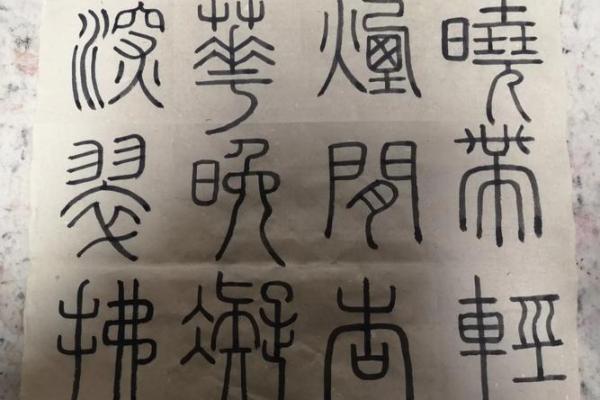 曉帶輕
煙間杏
華晚凝
深翠拂